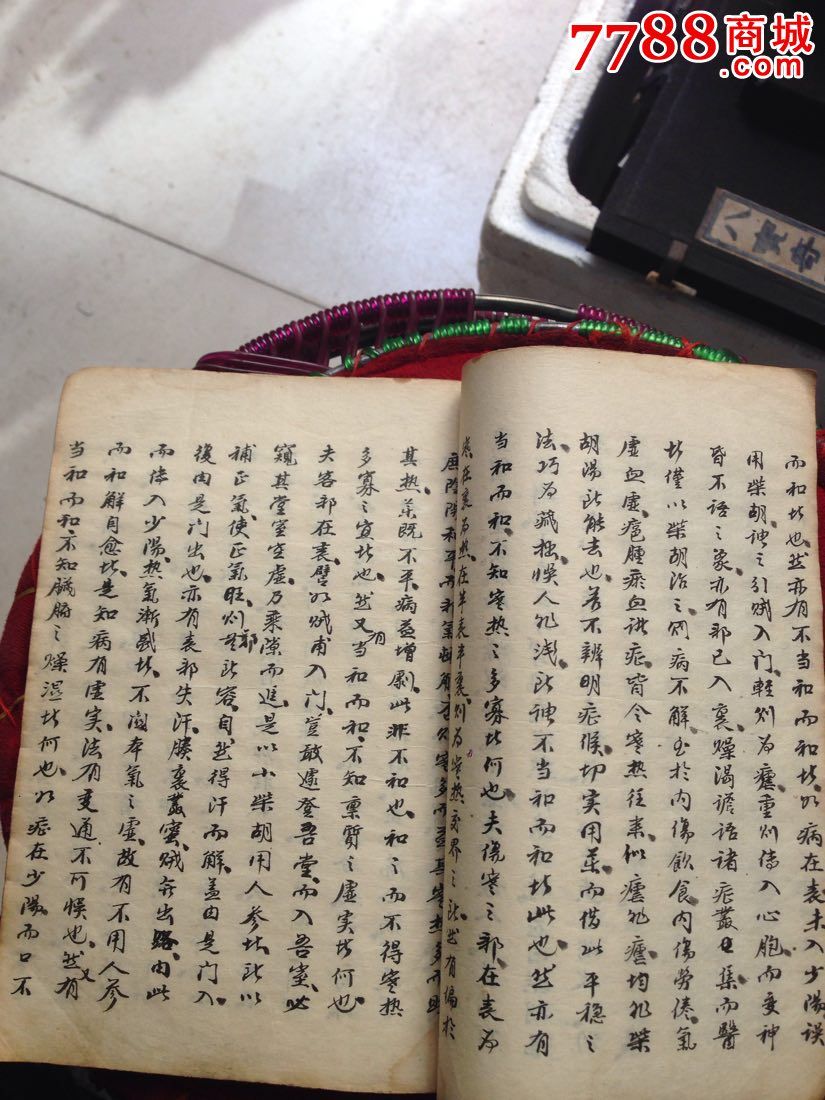 而和者也然亦有不当和而和者如病在表未入少陽误
用柴胡谓之引贼入门輕则为瘧重则传入心胞而变神
昏不语之象亦有邪已入裏燥渴谵语诸症叢集而醫
者僅以柴胡治之则病不解至於内傷飲食内傷劳倦氣
虚血虚瘡腫瘀血诸症皆令寒热往来似瘧非瘧均非柴
胡湯所能去也若不辨明症候切实用藥而借此平稳之
法巧为藏拙误人非浅所谓不当和而和者此也然亦有
当和而和不知寒热之多寡者何也夫傷寒之邪在表为
寒在裏为热在半表半裏则为寒热交界之所然有偏於
其热藥既不平病益增劇此非不和也和之而不得寒热
多寡之宜者也然又有当和而和不知禀質之虚实者何也
夫客邪在表譬如贼甫入门豈敢遽登吾堂而入吾室必
窺其堂室空虚乃乘隙而進是以小柴胡用人参者所以
補正氣使正氣旺则邪无所容自然得汗而解盖由是门入
復由是门出也亦有表邪失汗腠裏叢密贼无出路由此
而传入少陽热氣漸盛者不関本氣之虚故有不用人参
而和解自愈者是知病有虚实法有变通不可误也然又有
当和而和不知臓腑之燥湿者何也如症在少陽而口不
7788商城
.com